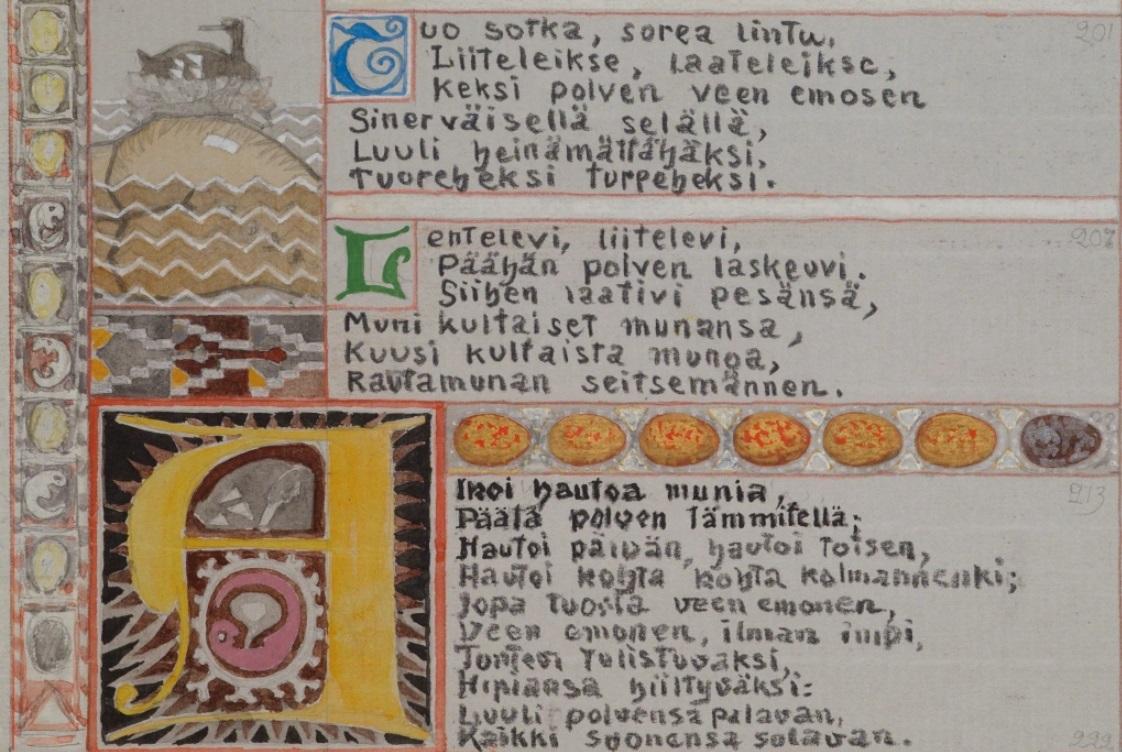 Tuo sotka, sorea lintu,
201
Liiteleikse, laateleikse,
Keksi polven veen emosen
Sinerväisellä selällä,
Luuli heinämättähäksi,
tuoreheksi turpeheksi.
Lentelevi, liitelevi,
207
Päähän polven laskeuvi.
Siihen laativi pesänsä,
Muni kultaiset munansa,
Kuusi kultaista munoa,
Rautamunan seitsemännen.
Alkoi hautoa munia,
213
Päälä polven lämmitellä;
Hautoi päivän, hautoi toisen,
Hautoi kohta kohta kolmannenki;
Jopa tuosta veen emonen,
Veen emonen, ilman impi,
Tuntevi tulistuvaksi,
Hipiänsä hiiltyväksi:
Luuli polvensa palavan,
Kaikki suonensa sulavan.
222